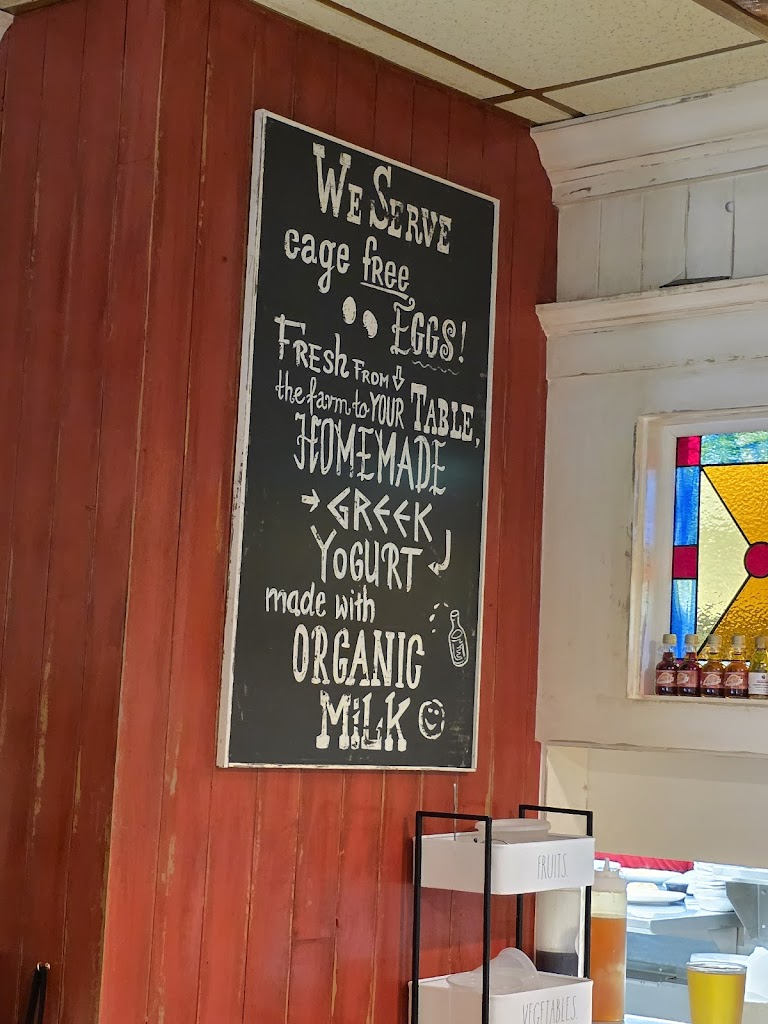 WE SERVE
cage free
EGGS!
FRESH FROM
the farm to YOUR TABLE,
HOMEMADE
GREEK
YOGURT
made with
ORGANIC
MILK
FRUITS.
VEGETABLES.